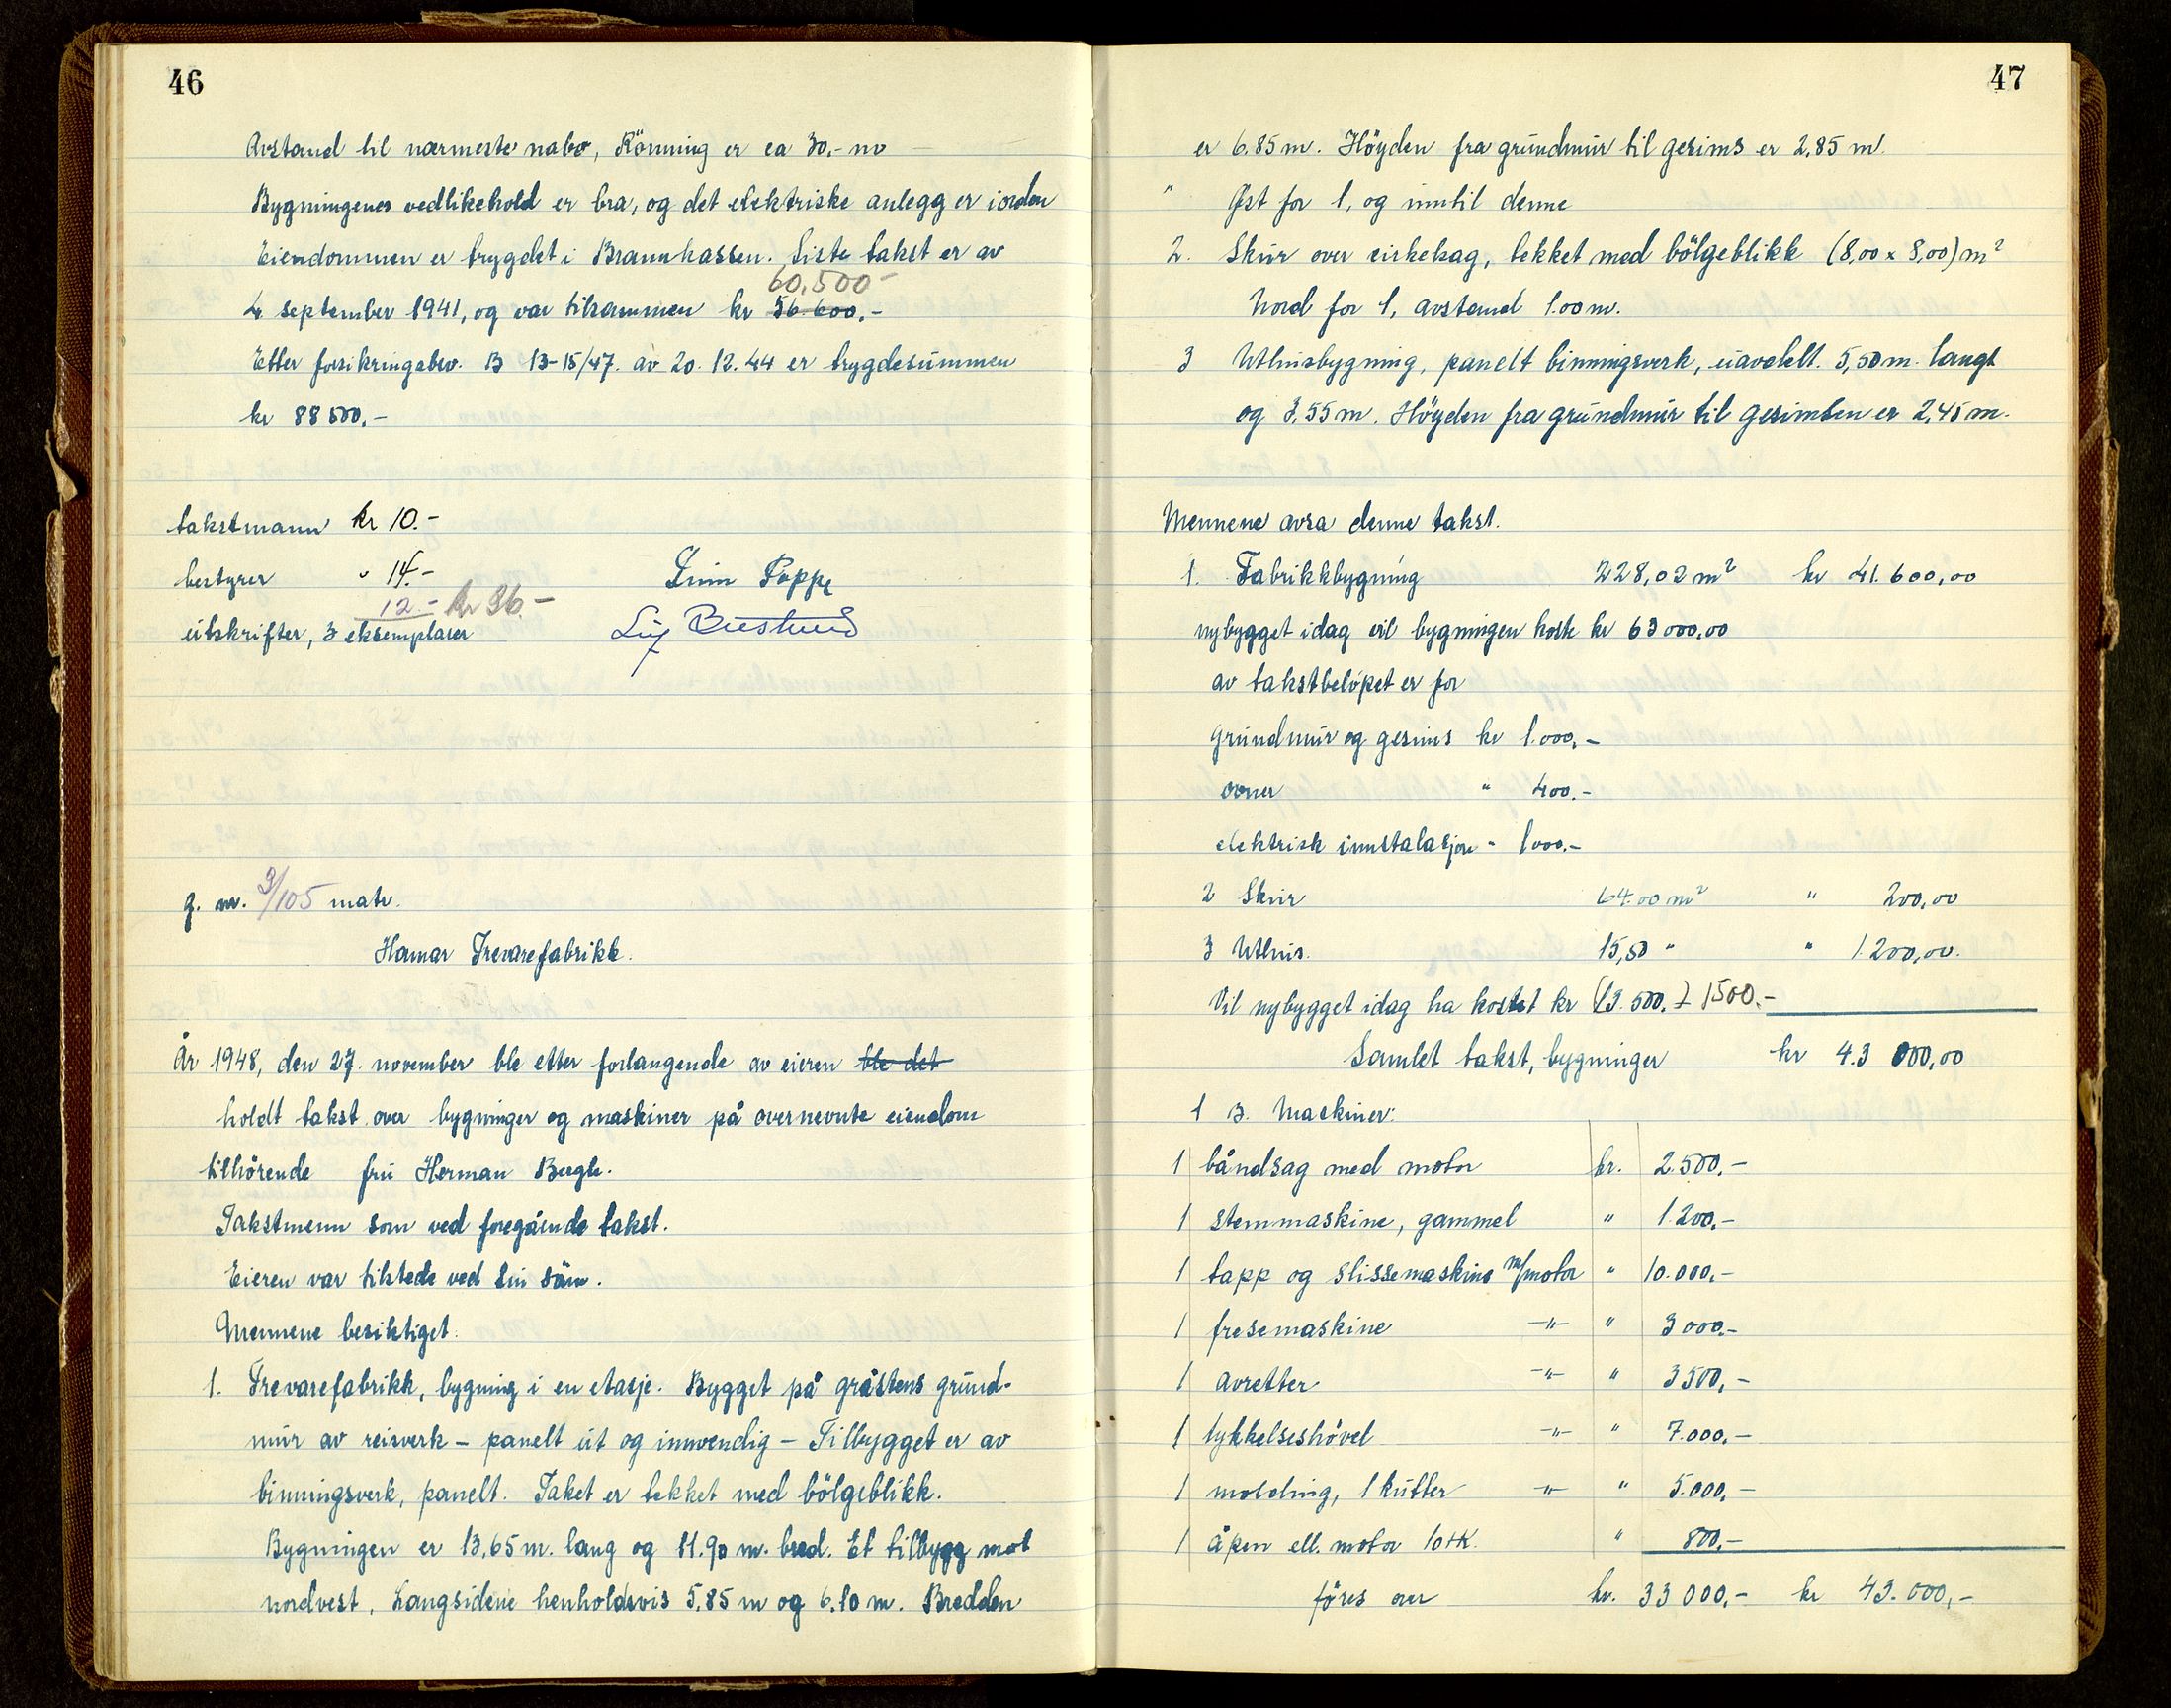 46
Avstand til nærmeste nabo, Rönning er ca 30,- m
Bygningenes vedlikehold er bra, og det elektriske anlegg er iorden
Eiendommen er trygdet i Brannkassen. Siste takst er av
60,500-
4 september 1941, og var tilsammen kr 56.600,-
Etter forsikringsbev. B 13-15/47. av 20. 12. 44 er trygdesummen
kr 88500,-
takstmann kr 10.-
bestyrer " 14.-
12.- kr 36.-
utskrifter, 3 eksemplarer
g. nr. 3/105 matr.
Hamar Trevarefabrikk.
År 1948, den 27. november ble etter forlangende av eieren ble det
holdt takst over bygninger og maskiner på overnevnte eiendom
tilhörende fru Herman Bergh.
Takstmenn som ved foregående takst.
Eieren var tilstede ved sin sönn.
Mennene besiktiget.
1. Trevarefabrikk, bygning i en etasje. Bygget på gråstens grund-
mur av reisverk - panelt ut og innvendig - Tilbygget er av
binningsverk, panelt. Taket er tekket med bölgeblikk.
Bygningen er 13,65 m. lang og 11.90 m. bred. Et tilbygg mot
nordvest. Langsidene henholdsvis 5,85 m og 6,10 m. Bredden
47
er 6.85 m. Höyden fra grundmur til gesims er 2,85 m.
" Øst for 1, og inntil denne
2. Skur over sirkelsag, tekket med bölgeblikk (8,00 x 8,00) m²
Nord for 1, avstand 1.00 m.
3 Uthusbygning, panelt binningsverk, uavdelt. 5,50 m. langt
og 3,55 m. Höyden fra grundmur til gesimsen er 2,45 m.
Mennene avsa denne takst.
1. Fabrikkbygning 228,02 m² kr 41.600,00
nybygget idag vil bygningen koste kr 63000,00
av takstbelöpet er for
grundmur og gesims kr 1.000,-
ovner " 400.-
elektrisk innstalasjon " 1000.-
2 Skur 64.00 m² " 200,00
3 Uthus. 15,50 " " 1.200,00.
Vil nybygget idag ha kostet kr (13.500.- 1500.-
Samlet takst, bygninger kr 43 000,00
1 B. Maskiner:
1 båndsag med motor kr. 2.500,-
1 stemmaskine, gammel " 1.200,-
1 tapp og slissemaskine m/motor " 10.000,-
1 fresemaskine -"- " 3000,-
1 avretter -"- " 3500,-
1 tykkelseshövel -"- " 7.000,-
1 molding, 1 kutter -"- " 5.000,-
1 åpen ell. motor 10 HK. " 800,-
föres over kr. 33000,- kr 43.000,-